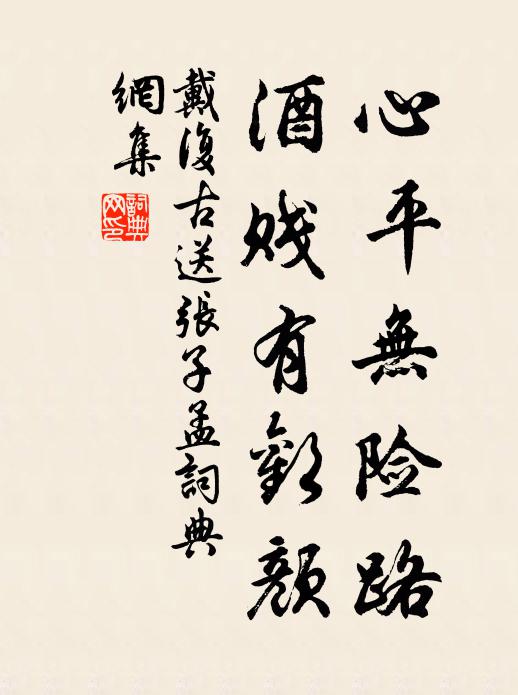 心平無险路
酒贱有歡颜
戴復古送張子孟詞典
網集
詞典
网印